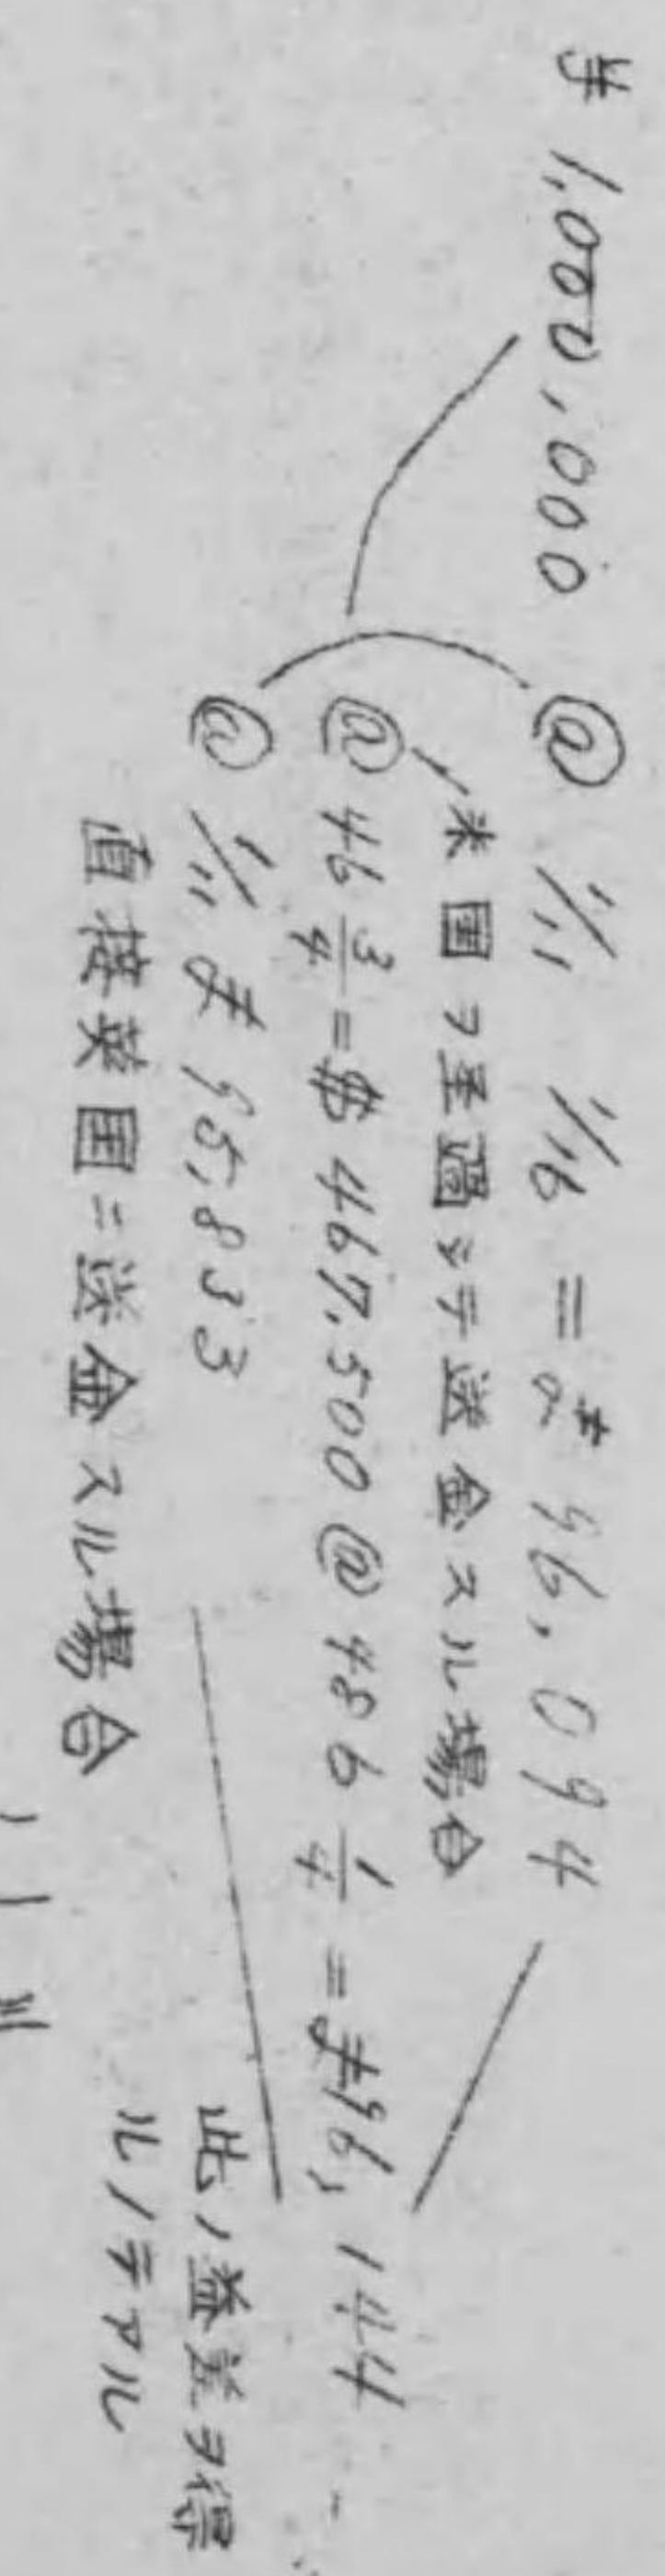 ¥ 1,000,000
@ 1/11 1/16 = £ 96,094
米国ヲ至過シテ送金スル場合
@ 46 3/4 = $ 467.500 @ 486 1/4 = £96,144
@ 1/11 £ 95,833
直接英国ニ送金スル場合
此ノ益差ヲ得
ルノデアル